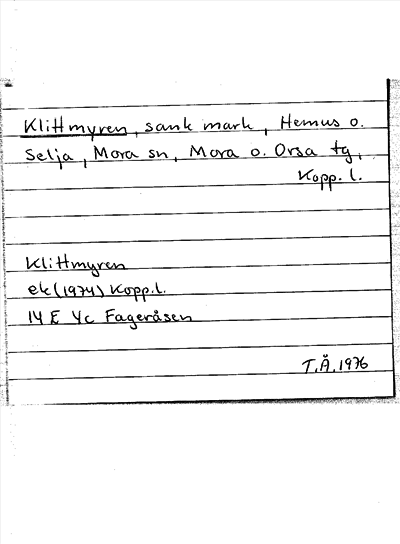 Klittmyren, sank mark, Hemus o.
Selja, Mora sn, Mora o. Orsa tg,
Kopp. l.
Klittmyren
ek (1974) Kopp.l.
14 E 4c Fageråsen
T.Å. 1976